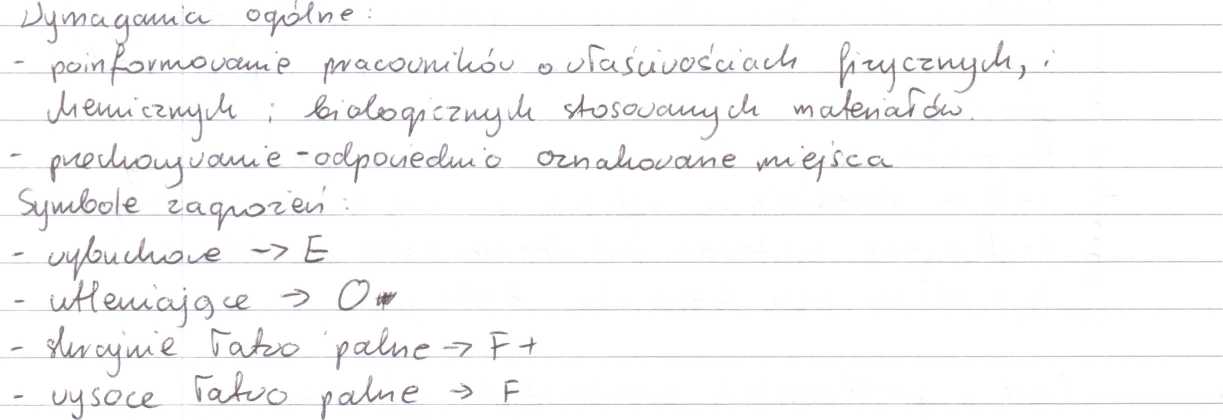 Wymagania ogólne:
- poinformowanie pracowników o właściwościach fizycznych, i
chemicznych i biologicznych stosowanych materiałów.
- przechowywanie - odpowiednio oznakowane miejsca
Symbole zagrożeń:
- wybuchowe -> E
- utleniające -> O
- skrajnie łatwo palne -> F+
- wysoce łatwo palne -> F